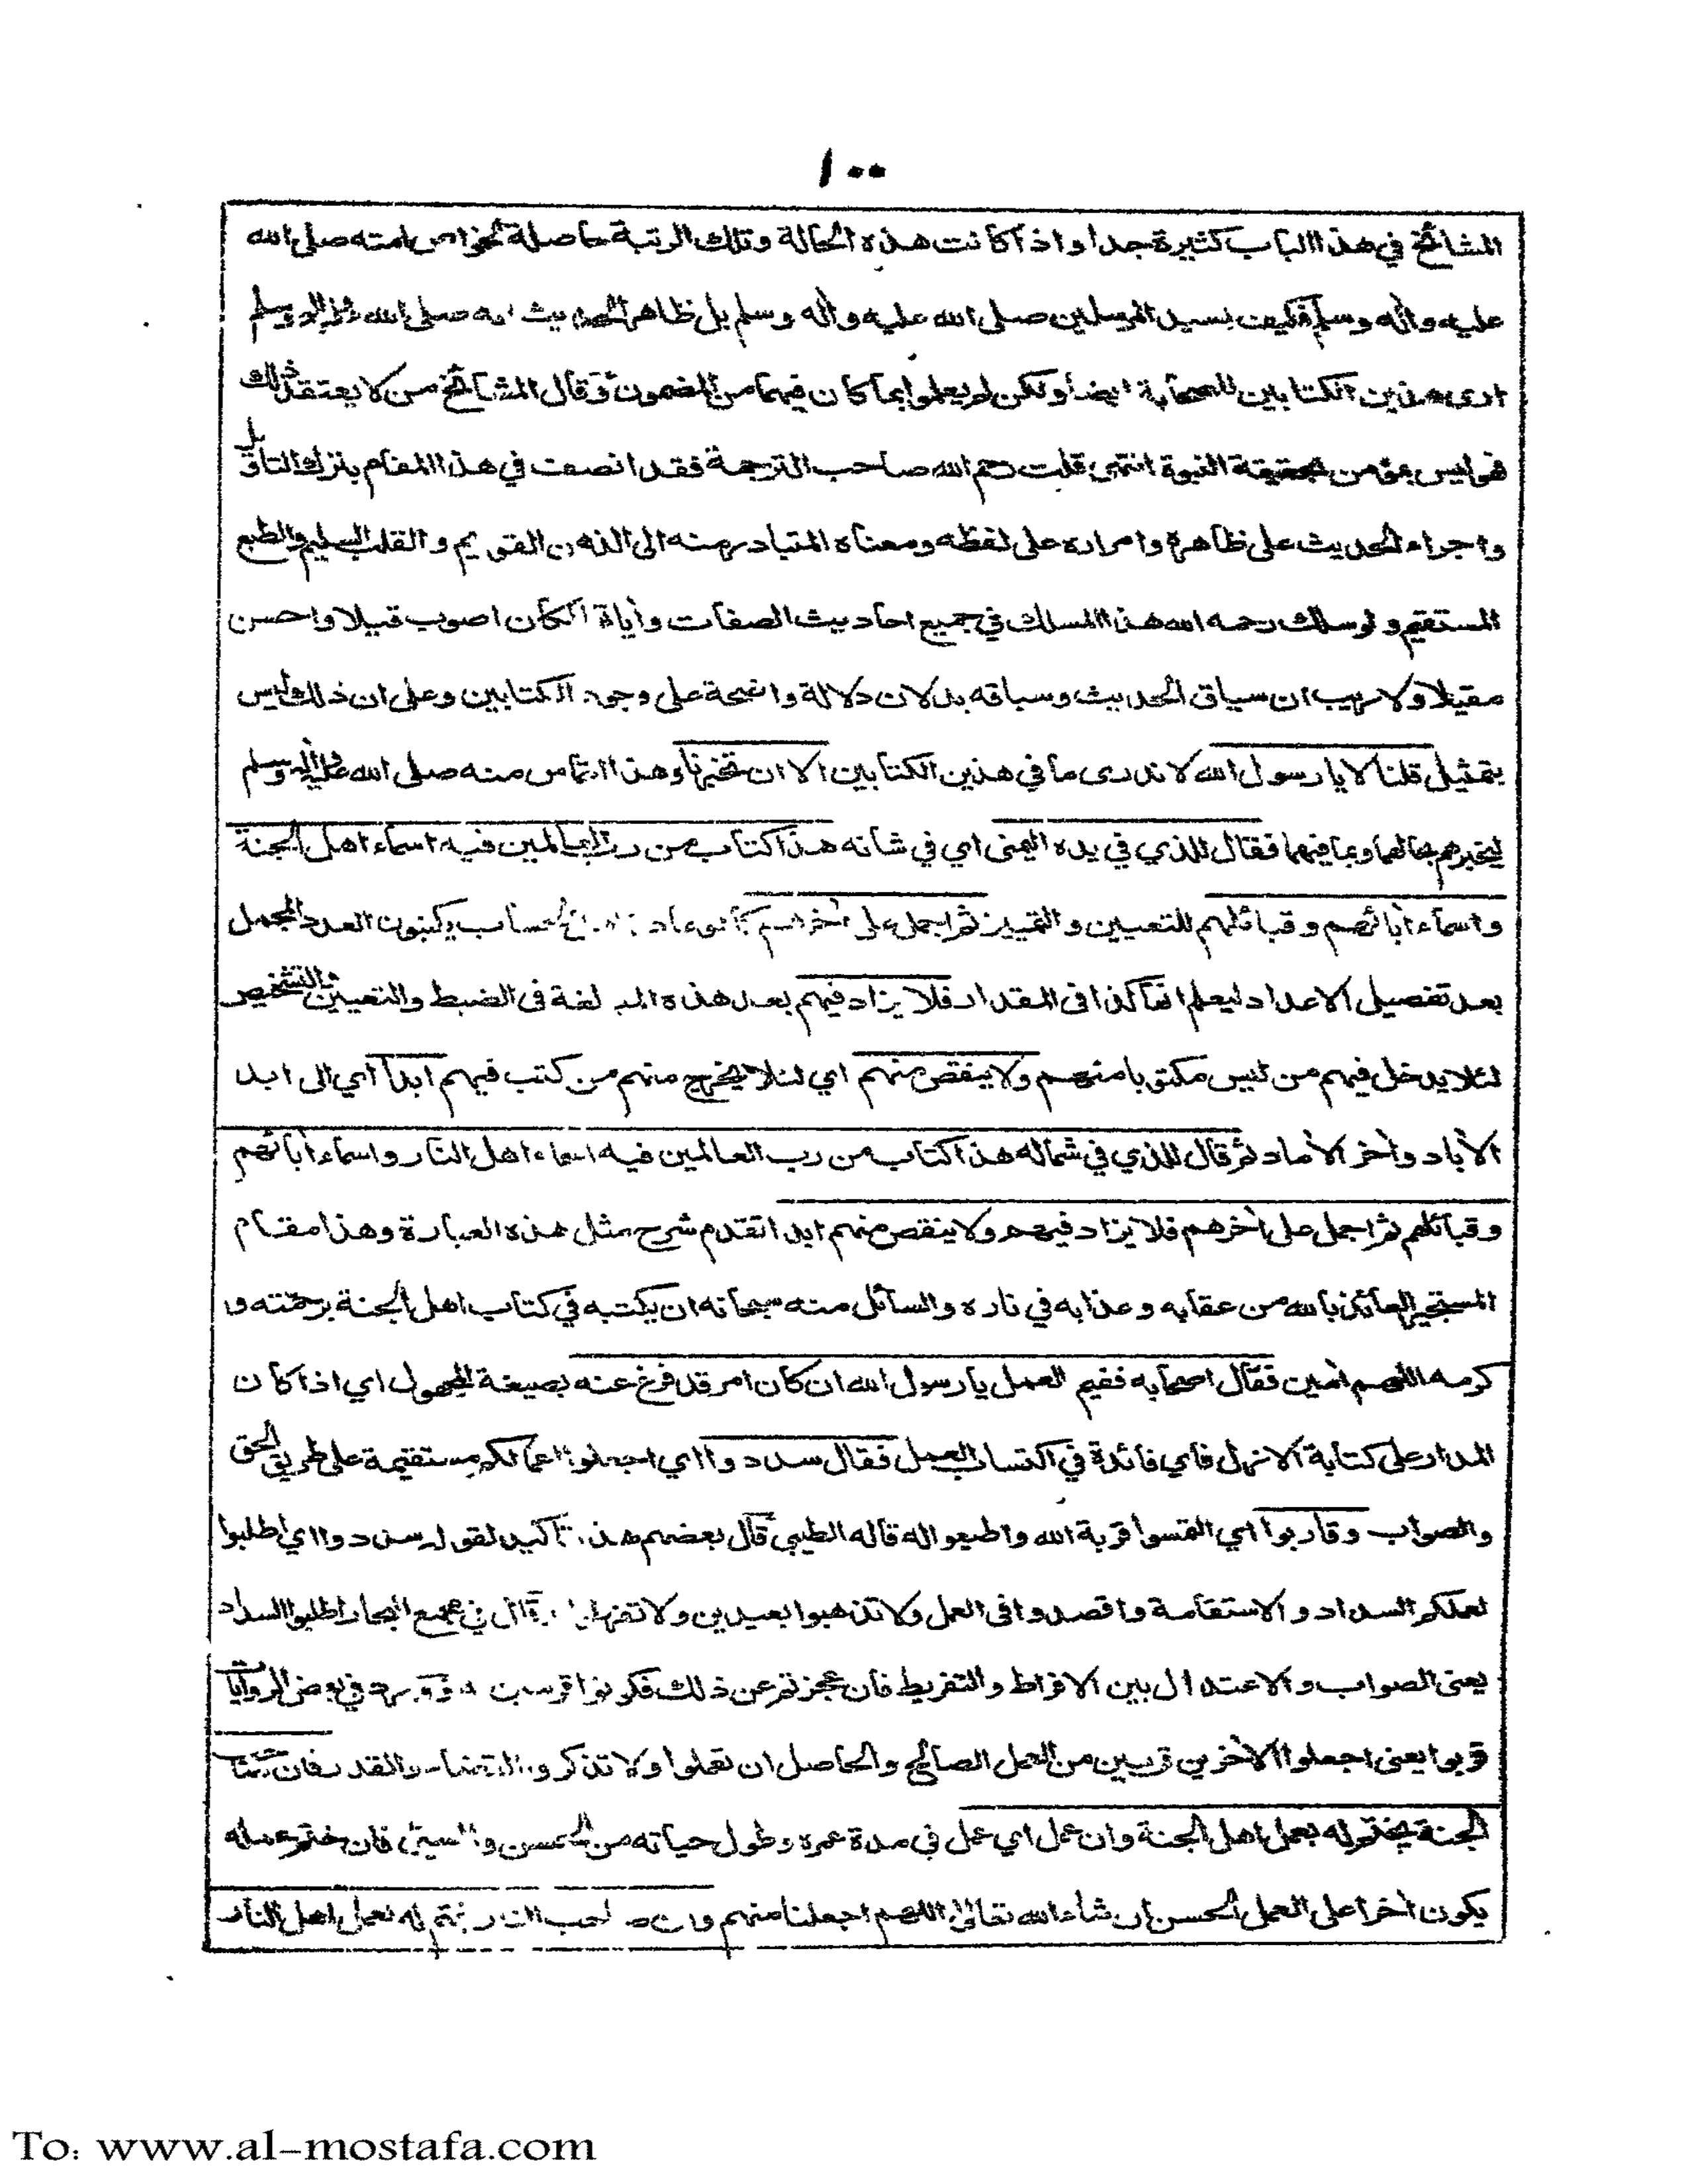 ١٠٠
المشائخ في هذا الباب كثيرة جدا واذا كانت هذه الحالة وتلك الرتبة حاصلة لخواص امته صلى الله
عليه وأله وسلم فكيف بسيد المرسلين صلى الله عليه وأله وسلم بل ظاهر الحديث انه صلى الله عليه وأله وسلم
ارى هذين الكتابين للصحابة ايضا ولكن لم يعلموا بما كان فيهما من المضمون وقال المشائخ من لا يعتقد ذلك
فهو ليس بمؤمن بحقيقة النبوة انتهى قلت رحم الله صاحب الترجمة فقد انصف في هذا المقام بترك التاويل
واجراء الحديث على ظاهره وامراره على لفظه ومعناه المتبادر منه الى الذهن القويم والقلب السليم والطبع
المستقيم ولو سلك رحمه الله هذا المسلك في جميع احاديث الصفات وأياة الكان اصوب قيلا واحسن
مقيلا ولا ريب ان سياق الحديث وسباقه يدلان دلالة واضحة على وجود الكتابين وعلى ان ذلك ليس
بتمثيل قلنا لا يا رسول الله لا ندرى ما في هذين الكتابين الا ان تخبرنا وهذا التماس منه صلى الله عليه وأله وسلم
ليخبرهم بحالهما وبما فيهما فقال للذي في يده اليمنى اي في شانه هذا كتاب من رب العالمين فيه اسماء اهل الجنة
واسماء أبائهم وقبائلهم للتعيين والتمييز ثم اجمل على أخرهم كما هو عادة الحساب يكتبون العدد المجمل
بعد تفصيل الاعداد ليعلم انها كذا فى المقدار فلا يزاد فيهم بعد هذه المبالغة فى الضبط والتعيين والتشخيص
لئلا يدخل فيهم من ليس مكتوبا منهم ولا ينقص منهم اي لئلا يخرج منهم من كتب فيهم ابدا اي الى ابد
الأباد وأخر الأماد ثم قال للذي في شماله هذا كتاب من رب العالمين فيه اسماء اهل النار واسماء أبائهم
وقبائلهم ثم اجمل على أخرهم فلا يزاد فيهم ولا ينقص منهم ابدا تقدم شرح مثل هذه العبارة وهذا مقام
المستجير العائذ بالله من عقابه وعذابه في ناره والسائل منه سبحانه ان يكتبه في كتاب اهل الجنة برحمته و
كرمه اللهم أمين فقال اصحابه ففيم العمل يا رسول الله ان كان امر قد فرغ عنه بصيغة المجهول اي اذا كان
المدار على كتابة الازل فاي فائدة في اكتساب العمل فقال سددوا اي اجعلوا اعمالكم مستقيمة على طريق الحق
والصواب وقاربوا اي التمسوا قربة الله واطيعوا له قاله الطيبي قال بعضهم هذا تاكيد لقوله سددوا اي اطلبوا
لعملكم السداد والاستقامة واقصدوا فى العمل ولا تذهبوا بعيدين ولا قال في مجمع البحار اطلبوا السداد
يعنى الصواب والاعتدال بين الافراط والتفريط فان عجزتم عن ذلك فكونوا قريبين منه وورد في بعض الروايات
قربوا يعنى اجعلوا الأخرين قريبين من العمل الصالح والحاصل ان تعملوا ولا تذكروا القضاء والقدر فان صاحب
الجنة يختم له بعمل اهل الجنة وان عمل اي عمل في مدة عمره وطول حياته من الحسن والسيئ فان ختم عمله
يكون أخرا على العمل الحسن ان شاء الله تعالى اللهم اجعلنا منهم وان صاحب النار يختم له بعمل اهل النار
To: www.al-mostafa.com